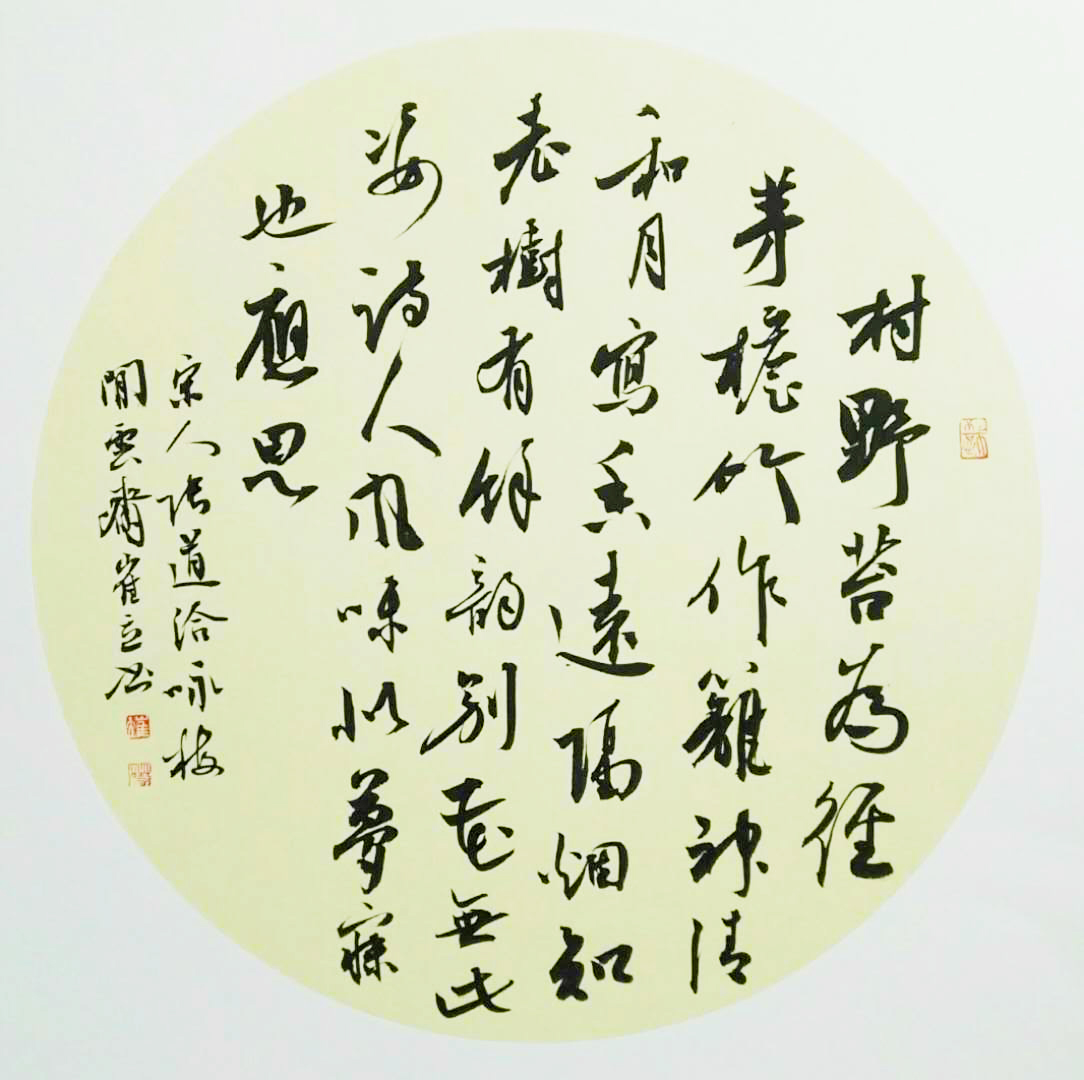 村野苔為徑
茅檐竹作籬神清
和月寫香遠隔烟知
老樹有餘韻別花無此
姿詩人風味似夢寐
也應思
宋人張道洽咏梅
閒雲齋崔立书